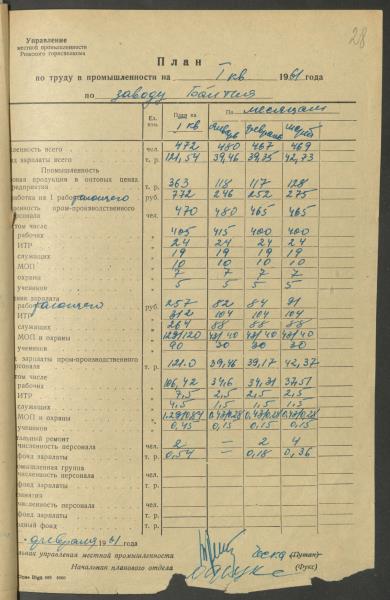 28
Управление
местной промышленности
Рижского горисполкома
План
по труду в промышленности на I кв 1961 года
по заводу Балтия
Ед. изм. План на I кв По месяцам
январь февраль март
ленность всего чел. 472 480 467 469
зарплаты всего т. р. 121,54 39,46 39,35 42,73
Промышленность
овая продукция в оптовых ценах
редприятия т. р. 363 118 117 128
работка на 1 работающего руб. 772 246 252 275
ленность пром-производственного
персонала чел. 470 480 465 465
том числе
рабочих " 405 415 400 400
ИТР " 24 24 24 24
служащих " 19 19 19 19
МОП " 10 10 10 10
охраны " 7 7 7 7
учеников " 5 5 5 5
зарплата
работающего руб. 257 82 84 91
ИТР " 312 104 104 104
служащих " 264 88 88 88
МОП и охраны " 129/120 43/40 43/40 43/40
учеников " 90 30 30 30
зарплаты пром-производственного
персонала т. р. 121.0 39,46 39,17 42,37
том числе
рабочих " 106,42 34,6 34,31 37,51
ИТР " 7,5 2,5 2,5 2,5
служащих " 4,5 1,5 1,5 1,5
МОП и охраны " 1.29/0.84 0,43/0,28 0,43/0,28 0,43/0,28
учеников " 0,45 0,15 0,15 0,15
тальный ремонт
численность персонала чел. 2 — 2 4
фонд зарплаты т. р. 0,54 — 0,18 0,36
ромышленная группа
численность персонала чел.
фонд зарплаты т. р.
численность персонала чел.
фонд зарплаты т. р.
одный фонд т. р.
" февраля 1961 года
Начальник управления местной промышленности (Путан)
Начальник планового отдела (Фукс)